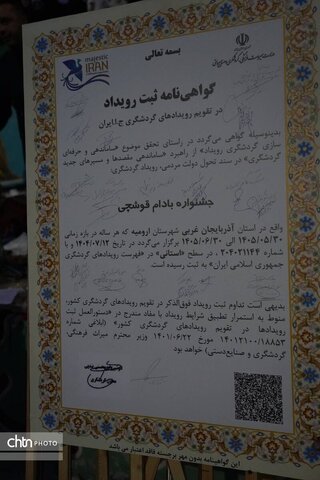 بسمه تعالی
majestic
IRAN
گواهی‌نامه ثبت رویداد
در تقویم رویدادهای گردشگری ج.ا.ایران
بدینوسیلهٔ گواهی می‌گردد در راستای تحقق موضوع «ساماندهی و حرفه‌ای
سازی گردشگری رویداد» از راهبرد «ساماندهی مقصدها و مسیرهای جدید
گردشگری» در سند تحول دولت مردمی، رویداد گردشگری:
جشنواره بادام قوشچی
واقع در استان آذربایجان غربی شهرستان ارومیه که هر ساله در بازه زمانی
۱۴۰۵/۰۵/۳۰ الی ۱۴۰۵/۰۶/۳۰ برگزار می‌گردد در تاریخ ۱۴۰۴/۰۷/۱۲ و با
شماره ۲۰۴۰۲۱۱۴۴ ، در سطح «استانی» در «فهرست رویدادهای گردشگری
جمهوری اسلامی ایران» به ثبت رسیده است.
بدیهی است تداوم ثبت رویداد فوق‌الذکر در تقویم رویدادهای گردشگری کشور،
منوط به استمرار تطبیق شرایط رویداد با مفاد مندرج در «دستورالعمل ثبت
رویدادها در تقویم رویدادهای گردشگری کشور» (ابلاغی شماره
۱۴۰۱۲۱۰۰/۱۸۸۵۳ مورخ ۱۴۰۱/۰۶/۲۲ وزیر محترم میراث فرهنگی،
گردشگری و صنایع‌دستی) خواهد بود
این گواهینامه بدون مهر برجسته فاقد اعتبار می باشد
chtn PHOTO